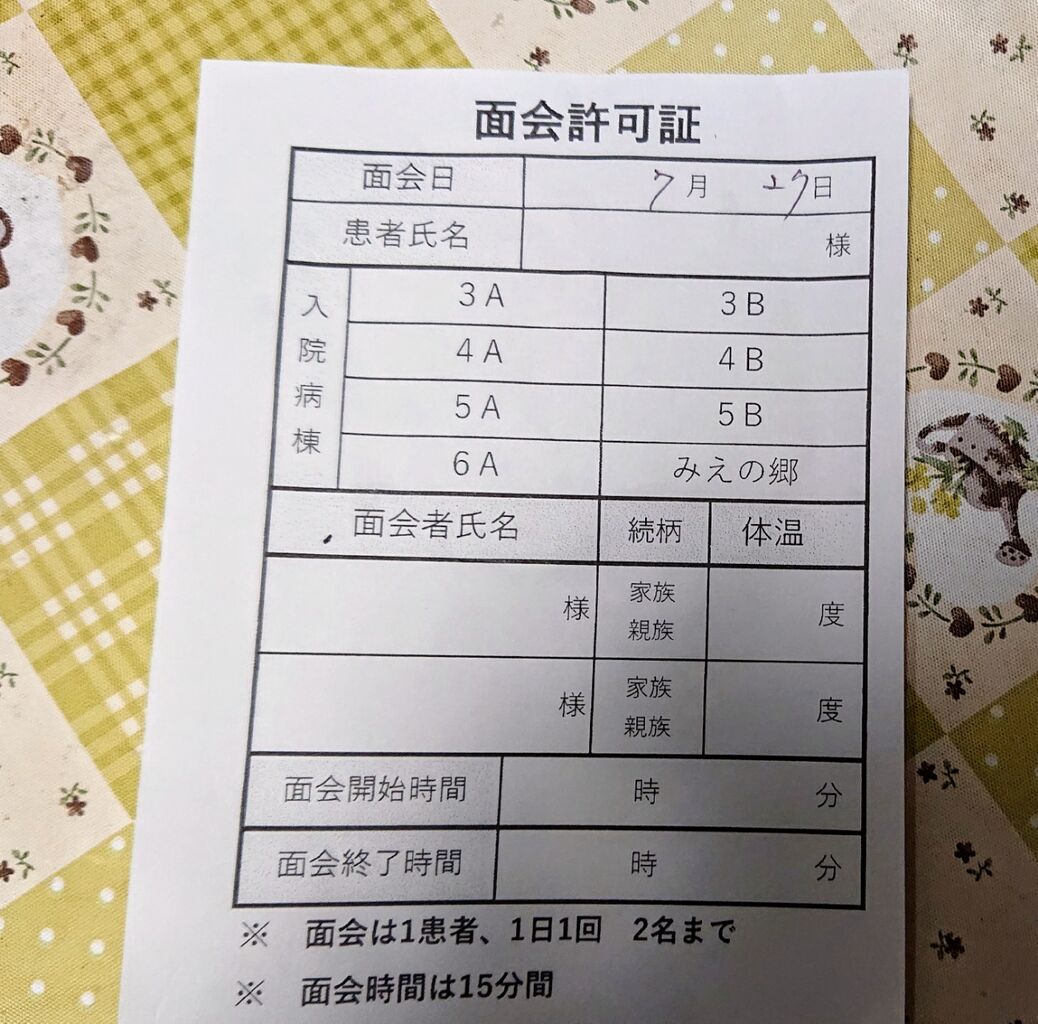 面会許可証
面会日 7月 27日
患者氏名 様
入院病棟
3A 3B
4A 4B
5A 5B
6A みえの郷
面会者氏名 続柄 体温
様 家族 親族 度
様 家族 親族 度
面会開始時間 時 分
面会終了時間 時 分
※ 面会は1患者、1日1回 2名まで
※ 面会時間は15分間